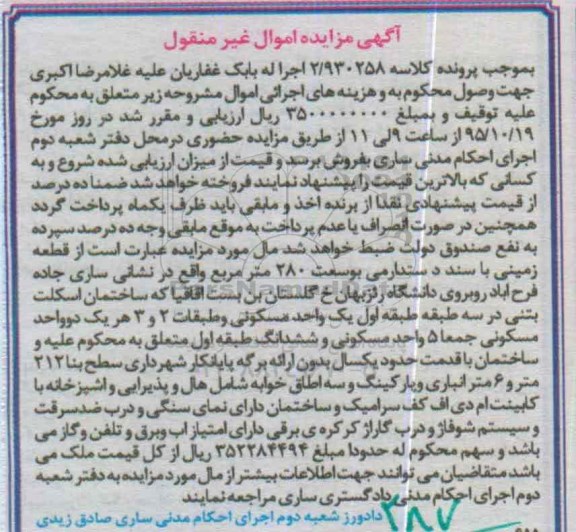 آگهی مزایده اموال غیر منقول
بموجب پرونده کلاسه ۲/۹۳۰۲۵۸ اجرا له بابک غفاریان علیه غلامرضا اکبری
جهت وصول محکوم به و هزینه های اجرائی اموال مشروحه زیر متعلق به محکوم
علیه توقیف و بمبلغ ۳۵۰۰۰۰۰۰۰۰ ریال ارزیابی و مقرر شد در روز مورخ
۹۵/۱۰/۱۹ از ساعت ۹ الی ۱۱ از طریق مزایده حضوری درمحل دفتر شعبه دوم
اجرای احکام مدنی ساری بفروش برسد و قیمت از میزان ارزیابی شده شروع و به
کسانی که بالاترین قیمت را پیشنهاد نمایند فروخته خواهد شد ضمنا ده درصد
از قیمت پیشنهادی نقدا از برنده اخذ و مابقی باید ظرف یکماه پرداخت گردد
همچنین در صورت انصراف یا عدم پرداخت به موقع مابقی وجه ده درصد سپرده
به نفع صندوق دولت ضبط خواهد شد مال مورد مزایده عبارت است از قطعه
زمینی با سند د ستدارمی بوسعت ۲۸۰ متر مربع واقع در نشانی ساری جاده
فرح اباد روبروی دانشگاه رزبهان خ گلستان بن بست اقاقیا که ساختمان اسکلت
بتنی در سه طبقه طبقه اول یک واحد مسکونی وطبقات ۲ و ۳ هر یک دوواحد
مسکونی جمعا ۵ واحد مسکونی و ششدانگ طبقه اول متعلق به محکوم علیه و
ساختمان با قدمت حدود یکسال بدون ارائه برگه پایانکار شهرداری سطح بنا ۲۱۲
متر و ۶ متر انباری وپارکینگ و سه اطاق خوابه شامل هال و پذیرایی و اشپزخانه با
کابینت ام دی اف کف سرامیک و ساختمان دارای نمای سنگی و درب ضدسرقت
و سیستم شوفاژ و درب گاراژ کرکره ی برقی دارای امتیاز اب وبرق و تلفن وگاز می
باشد و سهم محکوم له حدودا مبلغ ۳۵۲۲۸۴۴۹۴ ریال از کل قیمت ملک می
باشد متقاضیان می توانند جهت اطلاعات بیشتر از مال مورد مزایده به دفتر شعبه
دوم اجرای احکام مدنی دادگستری ساری مراجعه نمایند
دادورز شعبه دوم اجرای احکام مدنی ساری صادق زیدی
۳۸۷